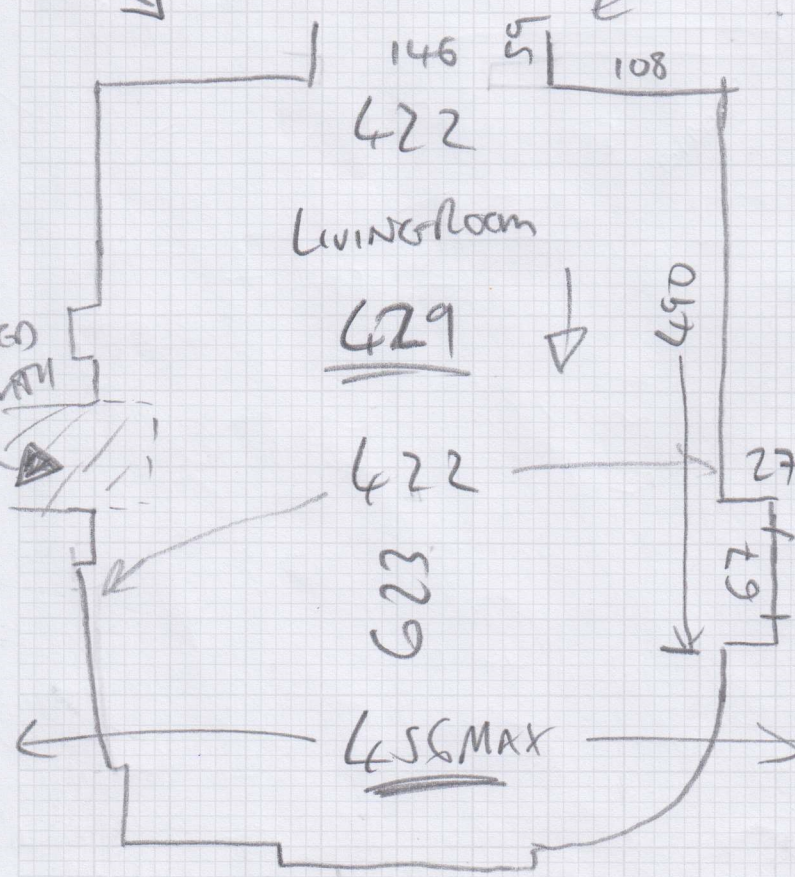 146
55
108
422
LIVINGROOM
429
490
422
27
623
67
456MAX